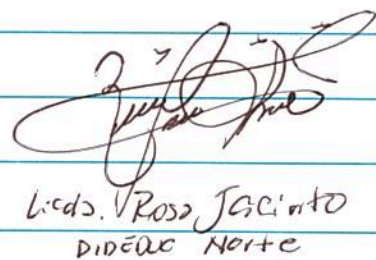 Licda. Rosa Jacinto
DIDEDUC Norte